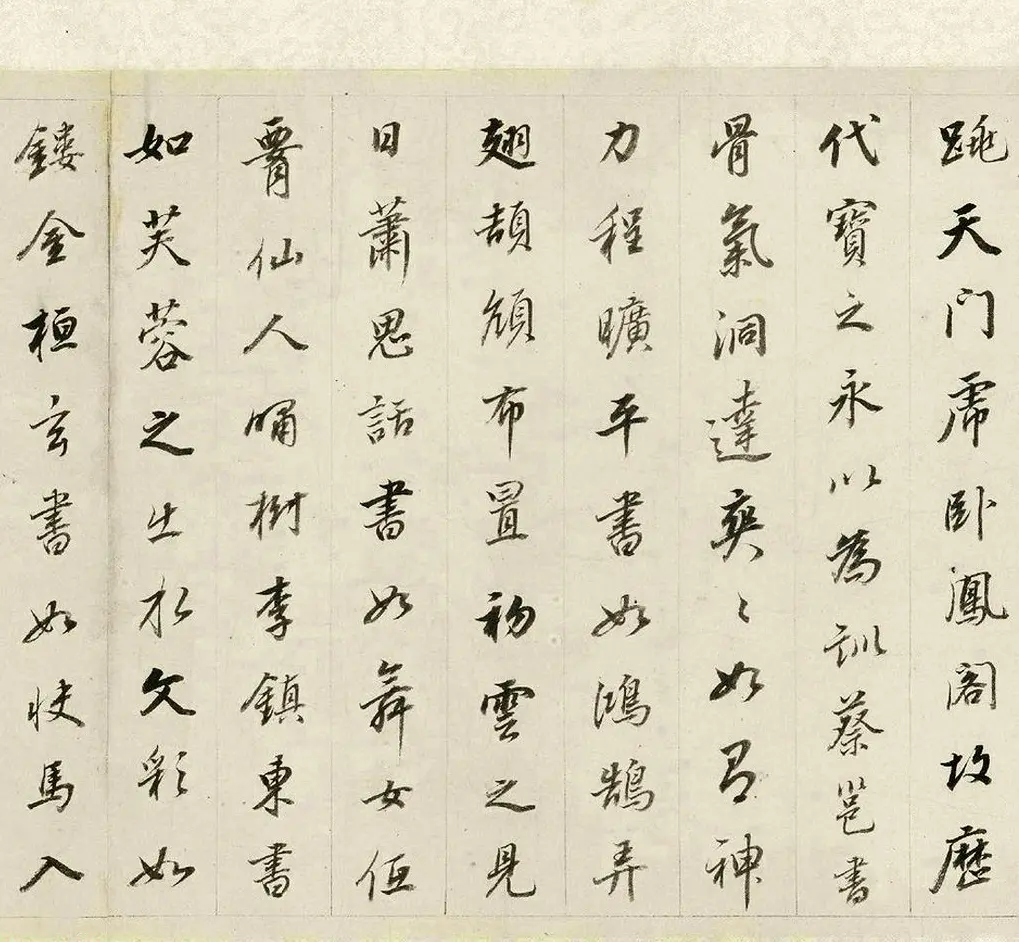 跳天门虎卧鳳閣故歷
代寶之永以為訓蔡邕書
骨氣洞達爽〻如有神
力程曠平書如鴻鵠弄
翅頡頏布置初雲之見
日蕭思話書如舞女低
腰仙人嘯樹李鎮東書
如芙蓉之出水文彩如
鏤金桓玄書如快馬入